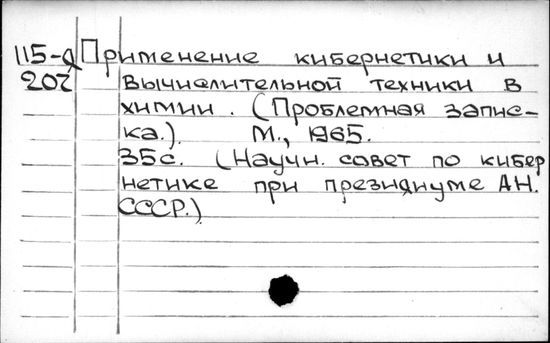 115-д Применение кибернетики и
202 вычислительной техники в
химии. (Проблемная запис-
ка.). М., 1965.
35с. (Научн. совет по кибер
нетике при президиуме АН.
СССР.)